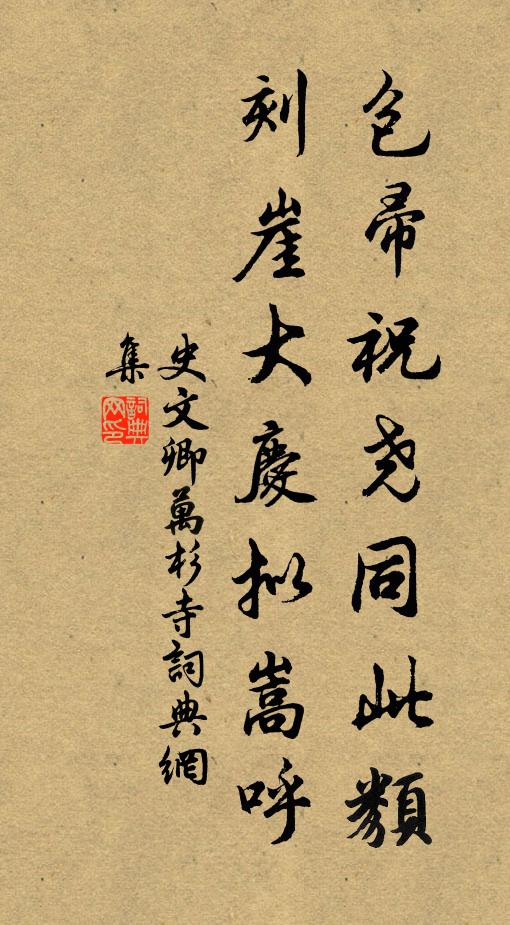 包帚祝尧同此類
刻崖大慶擬嵩呼
史文卿萬杉寺詞典網
集
詞典網印